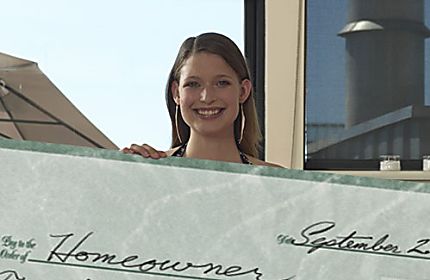 Pay to the
Order of Homeowner
Date September 2